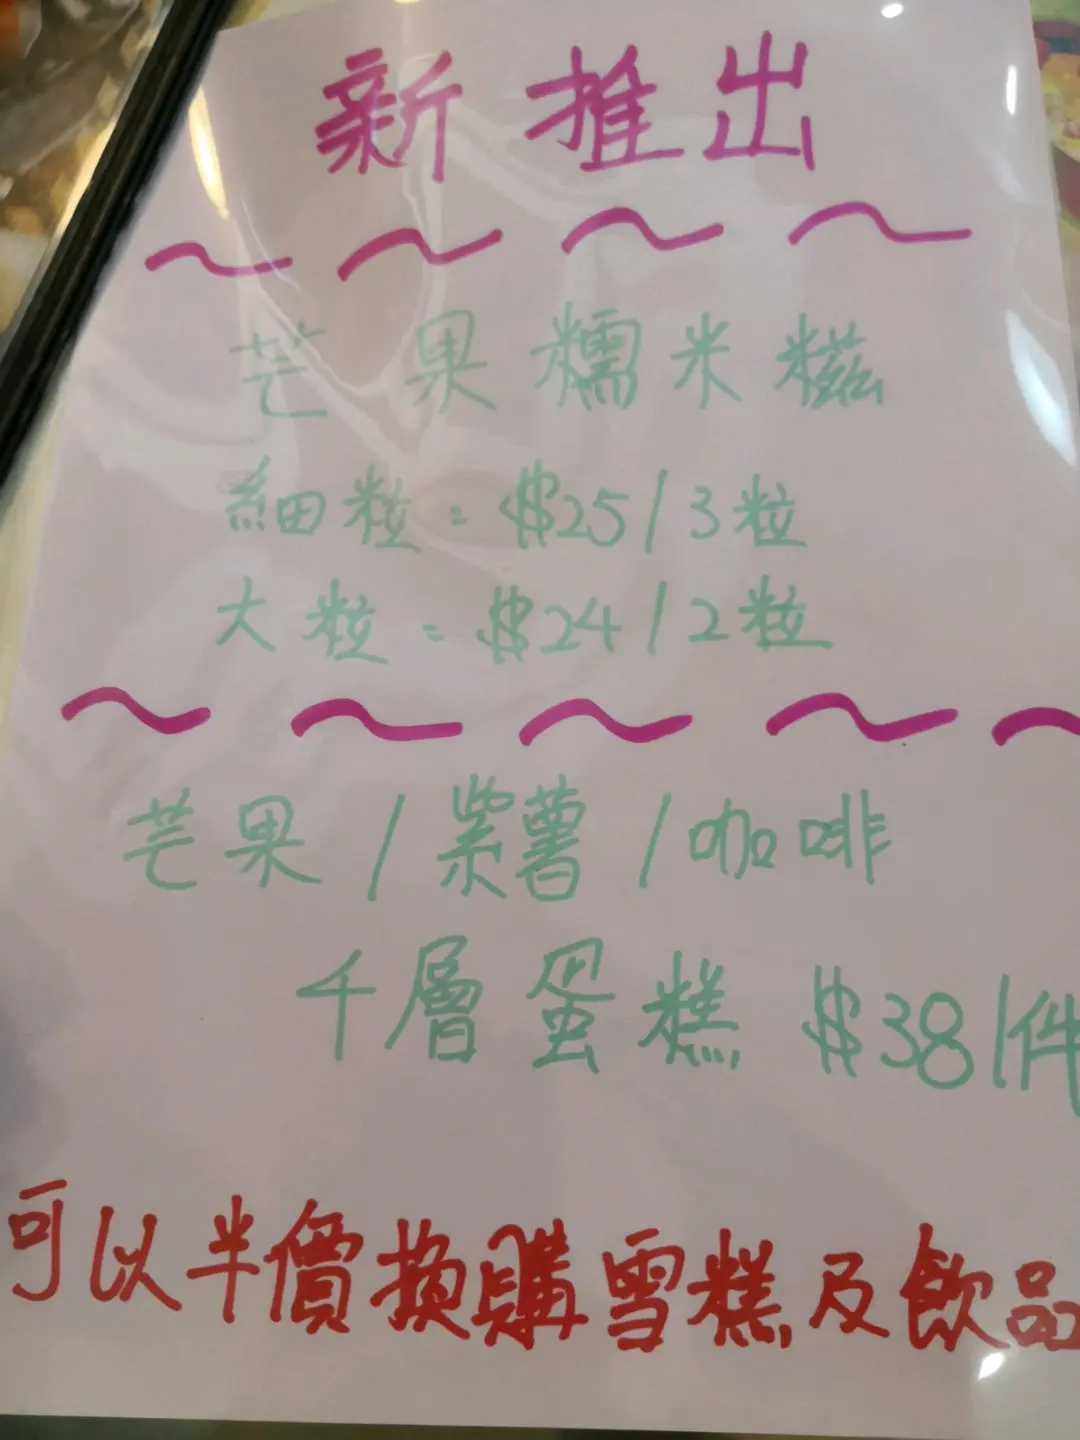 新推出
芒果糯米糍
細粒：$25/3粒
大粒：$24/2粒
芒果/紫薯/咖啡
千層蛋糕 $38/件
可以半價換購雪糕及飲品